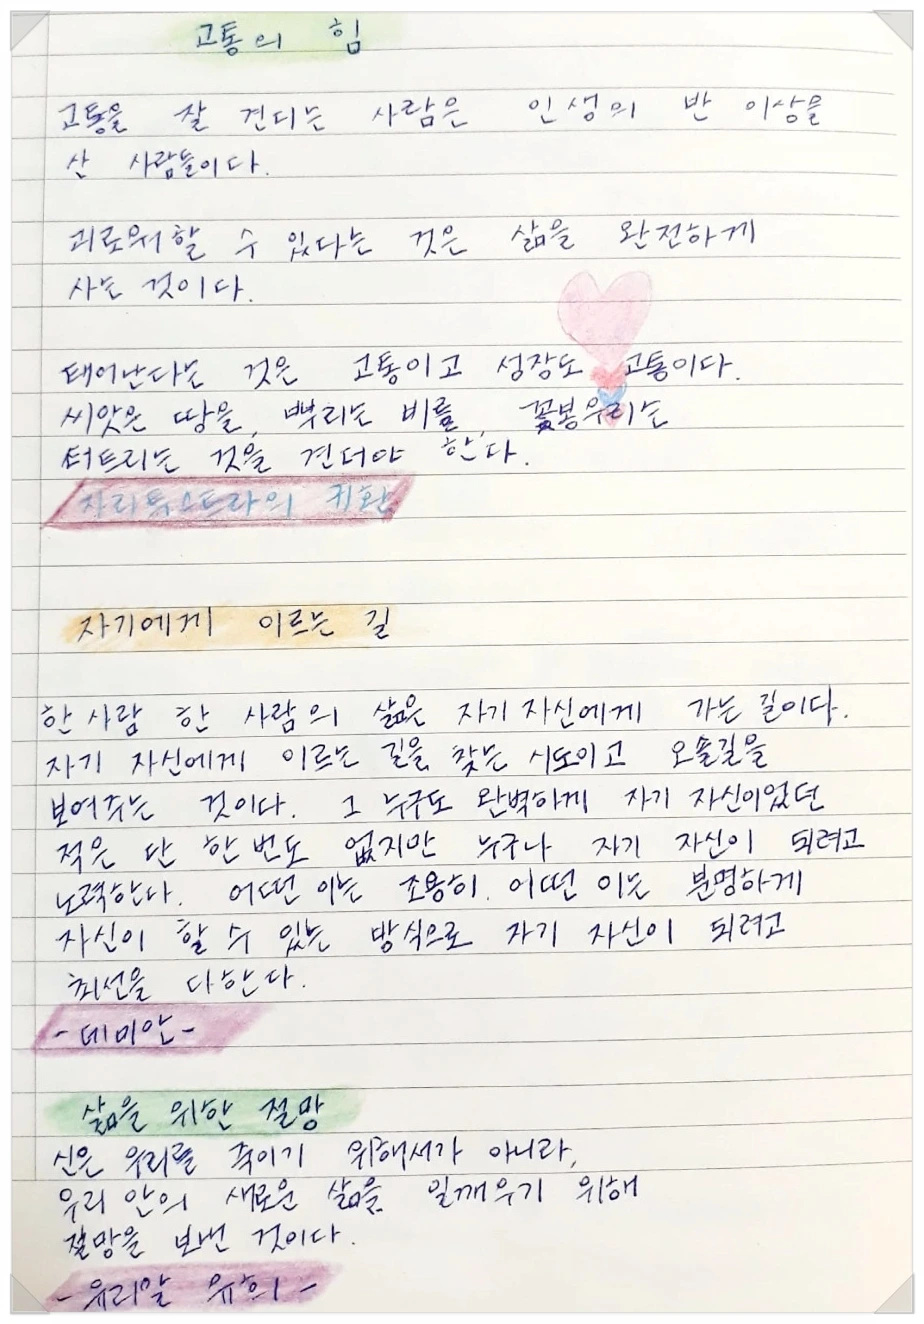 고통의 힘
고통을 잘 견디는 사람은 인생의 반 이상을
산 사람들이다.
괴로워할 수 있다는 것은 삶을 완전하게
사는 것이다.
태어난다는 것은 고통이고 성장도 고통이다.
씨앗은 땅을, 뿌리는 비를, 꽃봉우리는
터트리는 것을 견뎌야 한다.
자라투스트라의 귀환
자기에게 이르는 길
한 사람 한 사람의 삶은 자기 자신에게 가는 길이다.
자기 자신에게 이르는 길을 찾는 시도이고 오솔길을
보여주는 것이다. 그 누구도 완벽하게 자기 자신이었던
적은 단 한번도 없지만 누구나 자기 자신이 되려고
노력한다. 어떤 이는 조용히. 어떤 이는 분명하게
자신이 할 수 있는 방식으로 자기 자신이 되려고
최선을 다한다.
-데미안-
삶을 위한 절망
신은 우리를 죽이기 위해서가 아니라,
우리 안의 새로운 삶을 일깨우기 위해
절망을 보낸 것이다.
-유리알 유희-